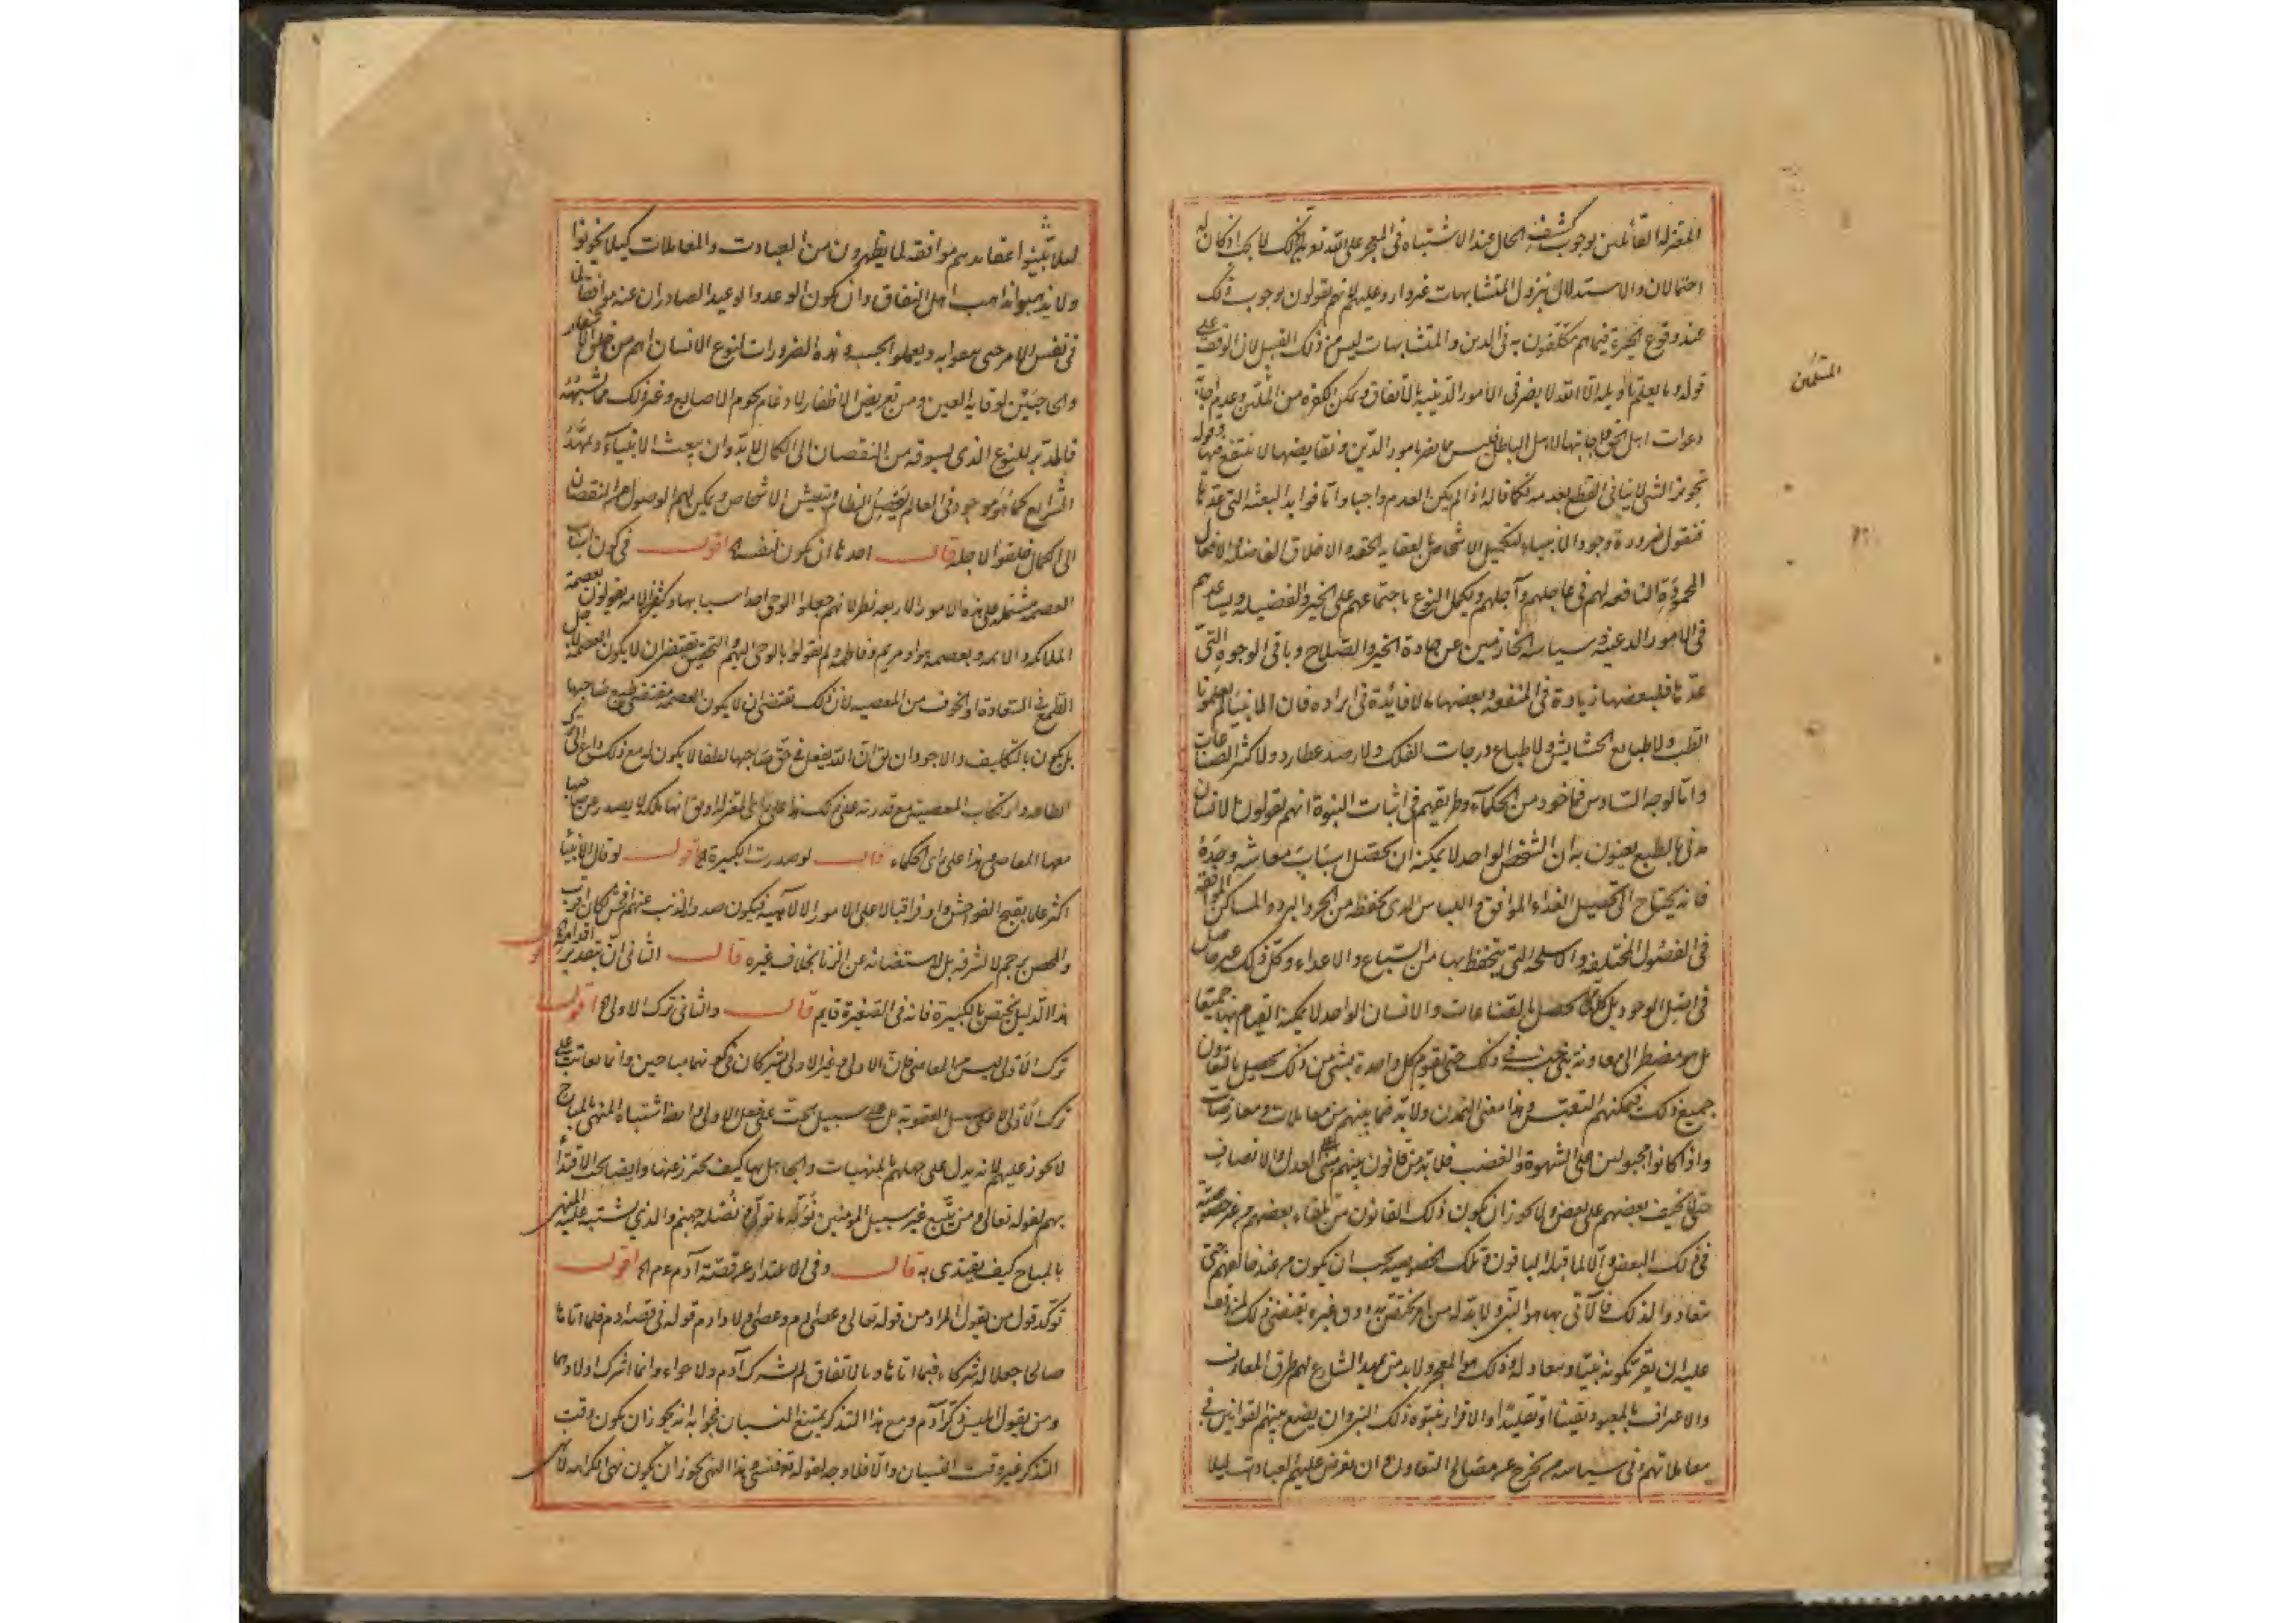 المعتزلة القائلين بوجوب كشف الحال عند الاشتباه في المعجز على الله تعالى لان ذلك لا يجب اذ كان له
احتمالان والاستدلال بنزول المتشابهات غير وارد عليهم لانهم يقولون بوجوب ذلك
عند وقوع الحيرة فيما هم مكلفون به في الدين والمتشابهات ليس من ذلك القبيل لان الوقف على
قوله وما يعلم تأويله الا الله لا يضر في الامور الدينية بالاتفاق ويمكن الكثرة من المتنبى وعدم اجابة
دعوات اهل الحق واجابتها لاهل الباطل فليس مما يضر بامور الدين ونقايضها لا ينتفع فيها وقوله
تجويز الشي لا ينافي القطع بعدمه فكما قاله اذا لم يكن العدم واجبا واما فوايد البعثة التي عدها
فنقول ضرورة وجود الانبياء لتكميل الاشخاص بالعقايد الحقة والاخلاق الفاضلة والافعال
المحمودة النافعة لهم في عاجلهم وآجلهم وتكميل النوع باجتماعهم على الخير والفضيلة ويساعدهم
في الامور الدينية وسياسة الخارجين عن جادة الخير والصلاح وباقي الوجوه التي
عدها فلبعضها زيادة في المنفعة وبعضها مما لا فائدة في ايراده فان الانبياء لم يعلموا
الطب ولا طبايع الحشايش ولا طبايع درجات الفلك ولا رصد عطارد ولا كثر الصناعات
واما الوجه السادس فماخوذ من الحكماء وطريقهم في اثبات النبوة انهم يقولون الانسان
مدني بالطبع يعنون به ان الشخص الواحد لا يمكنه ان يحصل اسباب معاشه وحده
فانه يحتاج الى تحصيل الغذاء الموافق واللباس الذي يحفظه من الحر والبرد والمساكن الموافقة
في الفصول المختلفة والاسلحة التي يتحفظ بها من السباع والاعداء وكل ذلك غير حاصل
في اصل الوجود بل كلها يحصل بالصناعات والانسان الواحد لا يمكنه القيام بها جميعا
بل هو مضطر الى معاونة بني جنسه في ذلك حتى يقوم كل واحد بشي من ذلك يحصل بالتعاون
جميع ذلك فيمكنهم التعيش وهذا معنى التمدن ولا بد فيما بينهم من معاملات ومعاوضات
واذا كانوا مجبولين على الشهوة والغضب فلا بد من قانون بينهم مبني على العدل والانصاف
حتى لا يحيف بعضهم على بعض ولا يجوز ان يكون ذلك القانون من تلقاء بعضهم من غير خصوصية
في ذلك البعض والا لما قبله الباقون وتلك الخصوصية يجب ان يكون من عند خالقهم حتى
ينقادوا لذلك فالآتي بها هو النبي ولا بد له من امر يختص به دون غيره يقتضي ذلك
عليه ان يقر بكونه نبيا وينقاد له وذلك هو المعجز ولا بد من تمهيد الشارع لهم طرق المعارف
والاعتراف بالمعبود يقينا او تقليدا والاقرار بنبوة ذلك النبي وان يضع بينهم القوانين في
معاملاتهم وفي سياسة من يخرج عن مصالح التعاون وان يفرض عليهم العبادات ليلا
المتنبين
لعلا يثبتوا عقايدهم موافقة لما يظهرون من العبادات والمعاملات كيلا يخونوا
ولا يذهبوا مذاهب اهل النفاق وان يكون الوعد والوعيد الصادران عنه موافقا لما
في نفس الامر حتى يصدقوا به ويعملوا بحسبه وهذه الضرورات لنوع الانسان اهم من خلق الاشفار
والحاجبين لوقاية العين ومن تعريض الاظفار لادغام لحوم الاصابع وغير ذلك مما يشبهه
فالمدبر للنوع الذي يسوقه من النقصان الى الكمال لا بد وان يبعث الانبياء ويمهد
الشرايع كما هو موجود في العالم ليحصل النظام وتعيش الاشخاص ويمكن لهم الوصول من النقصان
الى الكمال خلقوا لاجله قال احدها ان يكون لنفسه اقول في كون اسباب
العصمة مشتملة على هذه الامور الاربعة نظر لانهم جعلوا الوحي احد اسبابها وكثير من الامة يقولون بعصمة
الملائكة والائمة وبعصمة حواء ومريم وفاطمة ولم يقولوا بالوحي اليهم والتحقيق يقتضي ان لا يكون العصمة لاجل
الطمع في السعادة او الخوف من المعصية لان ذلك يقتضي ان لا يكون العصمة مقتضى طبع صاحبها
بل يكون بالتكليف والاجود ان يق ان الله يفعل في حق صاحبها لطفا لا يكون له مع ذلك داع الى ترك
الطاعة وارتكاب المعصية مع قدرته على ذلك هذا على راي المعتزلة او يق انها ملكة لا يصدر عن صاحبها
معها المعاصي هذا على راي الحكماء قال لو صدرت الكبيرة الخ اقول لو قال الانبياء
اكثر علما بقبح الفواحش واوفر اقبالا على الامور الالهية فيكون صدور الذنب عنهم افحش لكان اقرب
والمحصن يرجم لا لشرفه بل لاستغنائه عن الزنا بخلاف غيره قال الثاني ان بتقدير اقدامه الخ اقول
هذا الدليل يختص بالكبيرة فانه في الصغيرة قايم قال والثاني ترك الاولى الخ اقول
ترك الاولى ليس من المعاصي فان الاولى وغير الاولى يشتركان في كونهما مباحين وانما يعاتب على
ترك الاولى لا على سبيل العقوبة بل على سبيل الحث على فعل الاولى وايضا اشتباه المنهي بالمباح
لا يجوز عليهم لانه يدل على جهلهم بالمنهيات والجاهل بها كيف يحترز عنها وايضا يجب الاقتداء
بهم لقوله تعالى ومن يتبع غير سبيل المومنين نوله ما تولى ونصله جهنم والذي يشتبه عليه المنهي
بالمباح كيف يقتدى به قال وفي الاعتذار عن قصة آدم عم الخ اقول
توكد قول من يقول المراد من قوله تعالى وعصى آدم وعصى اولاد ادم قوله في قصة ادم فلما اتاهما
صالحا جعلا له شركاء فيما اتاهما وبالاتفاق لم يشرك آدم ولا حواء وانما اشرك اولادهما
ومن يقول ابليس ذكر آدم ومع هذا التذكر يمتنع النسيان فجوابه انه يجوز ان يكون وقت
التذكر غير وقت النسيان والا فلا وجه لقوله تع فنسي وهذا النهي يجوز ان يكون نهي الكراهة لا